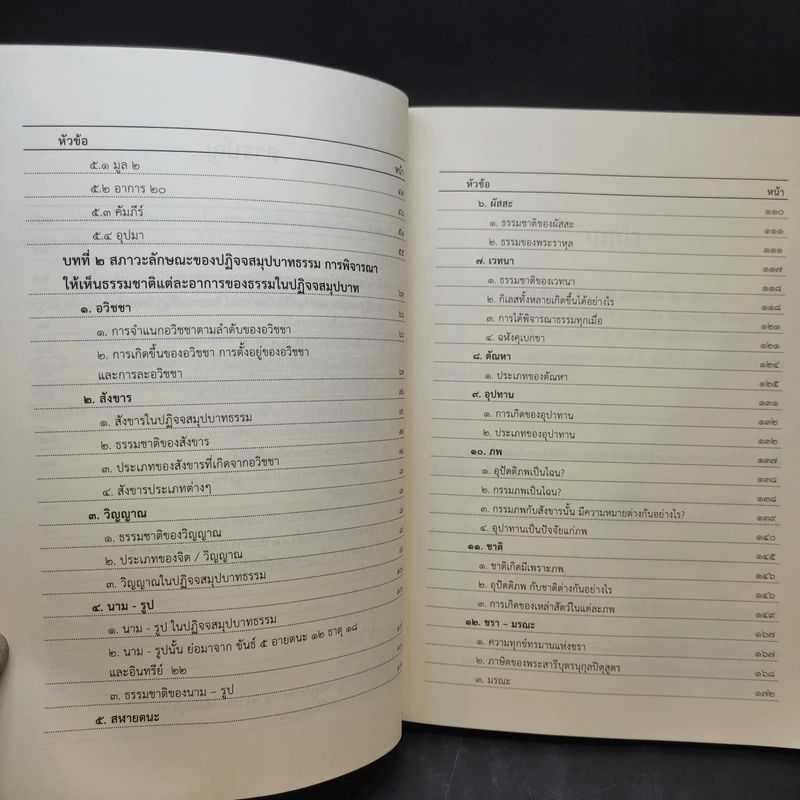 หัวข้อ
หน้า
๕.๑ มูล ๒
๕.๒ อาการ ๒๐
๕.๓ คัมภีร์
๕.๔ อุปมา
บทที่ ๒ สภาวะลักษณะของปฏิจจสมุปบาทธรรม การพิจารณา
ให้เห็นธรรมชาติแต่ละอาการของธรรมในปฏิจจสมุปบาท
๑. อวิชชา
๑. การจำแนกอวิชชาตามลำดับของอวิชชา
๒. การเกิดขึ้นของอวิชชา การตั้งอยู่ของอวิชชา
และการละอวิชชา
๒. สังขาร
๑. สังขารในปฏิจจสมุปบาทธรรม
๒. ธรรมชาติของสังขาร
๓. ประเภทของสังขารที่เกิดจากอวิชชา
๔. สังขารประเภทต่างๆ
๓. วิญญาณ
๑. ธรรมชาติของวิญญาณ
๒. ประเภทของจิต / วิญญาณ
๓. วิญญาณในปฏิจจสมุปบาทธรรม
๔. นาม - รูป
๑. นาม - รูป ในปฏิจจสมุปบาทธรรม
๒. นาม - รูปนั้น ย่อมาจาก ขันธ์ ๕ อายตนะ ๑๒ ธาตุ ๑๘
และอินทรีย์ ๒๒
๓. ธรรมชาติของนาม – รูป
๕. สฬายตนะ
หัวข้อ หน้า
๖. ผัสสะ ๑๑๐
๑. ธรรมชาติของผัสสะ ๑๑๑
๒. ธรรมของพระราหุล ๑๑๑
๗. เวทนา ๑๑๗
๑. ธรรมชาติของเวทนา ๑๑๘
๒. กิเลสทั้งหลายเกิดขึ้นได้อย่างไร ๑๑๘
๓. การได้พิจารณาธรรมทุกเมื่อ ๑๒๑
๔. ฉฬังคุเบกขา ๑๒๑
๘. ตัณหา ๑๒๔
๑. ประเภทของตัณหา ๑๒๕
๙. อุปทาน ๑๓๑
๑. การเกิดของอุปาทาน ๑๓๒
๒. ประเภทของอุปาทาน ๑๓๒
๑๐. ภพ ๑๓๗
๑. อุปัตติภพเป็นไฉน? ๑๓๘
๒. กรรมภพเป็นไฉน? ๑๓๘
๓. กรรมภพกับสังขารนั้น มีความหมายต่างกันอย่างไร? ๑๓๙
๔. อุปาทานเป็นปัจจัยแก่ภพ ๑๔๐
๑๑. ชาติ ๑๔๕
๑. ชาติเกิดมีเพราะภพ ๑๔๖
๒. อุปัตติภพ กับชาติต่างกันอย่างไร ๑๔๖
๓. การเกิดของเหล่าสัตว์ในแต่ละภพ ๑๔๙
๑๒. ชรา – มรณะ ๑๖๗
๑. ความทุกข์ทรมานแห่งชรา ๑๖๗
๒. ภาษิตของพระสารีบุตรนุกุลปิตุสูตร ๑๖๘
๓. มรณะ ๑๗๒